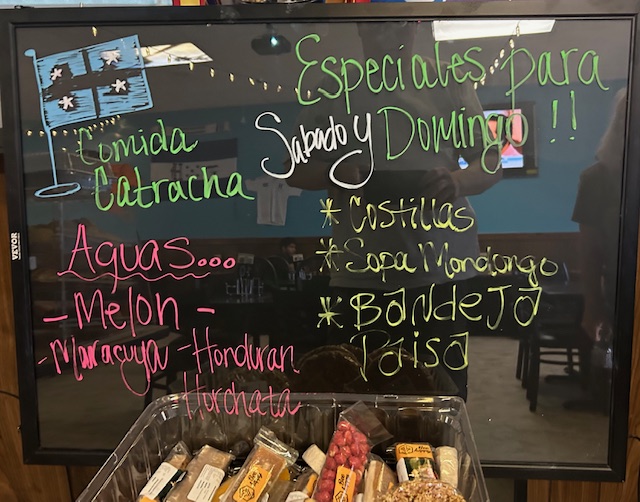 Especiales para
Sabado y Domingo !!
Comida
Catracha
* Costillas
* Sopa Mondongo
* BANDEJA
PAISA
Aguas...
- Melon -
- Maracuya - Honduran
Horchata
VEVOR